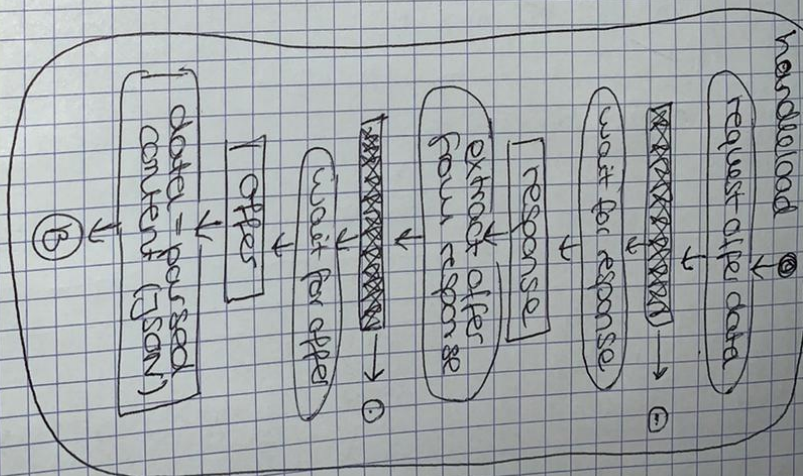 handleload
request offer data
wait for response
response
extract offer
from response
wait for offer
offer
data = parsed
content (JSON)
B